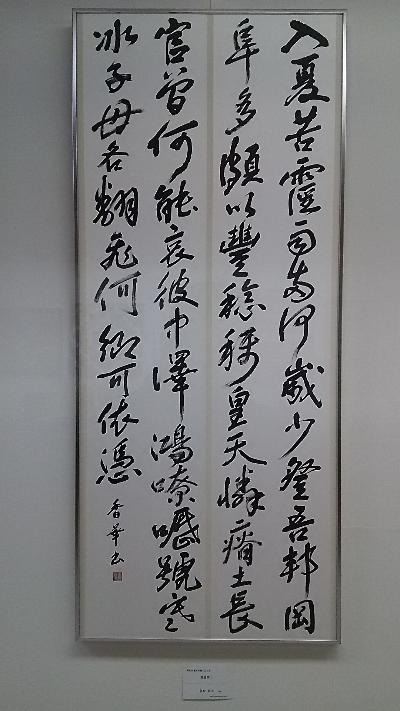 入夏苦霪雨両河歲少登吾邦岡
阜多頗以豐稔稱皇天憐瘠土長
官曾何能哀彼中澤鴻嘹嚦號寒
冰子母各翻飛何鄉可依憑
香華書